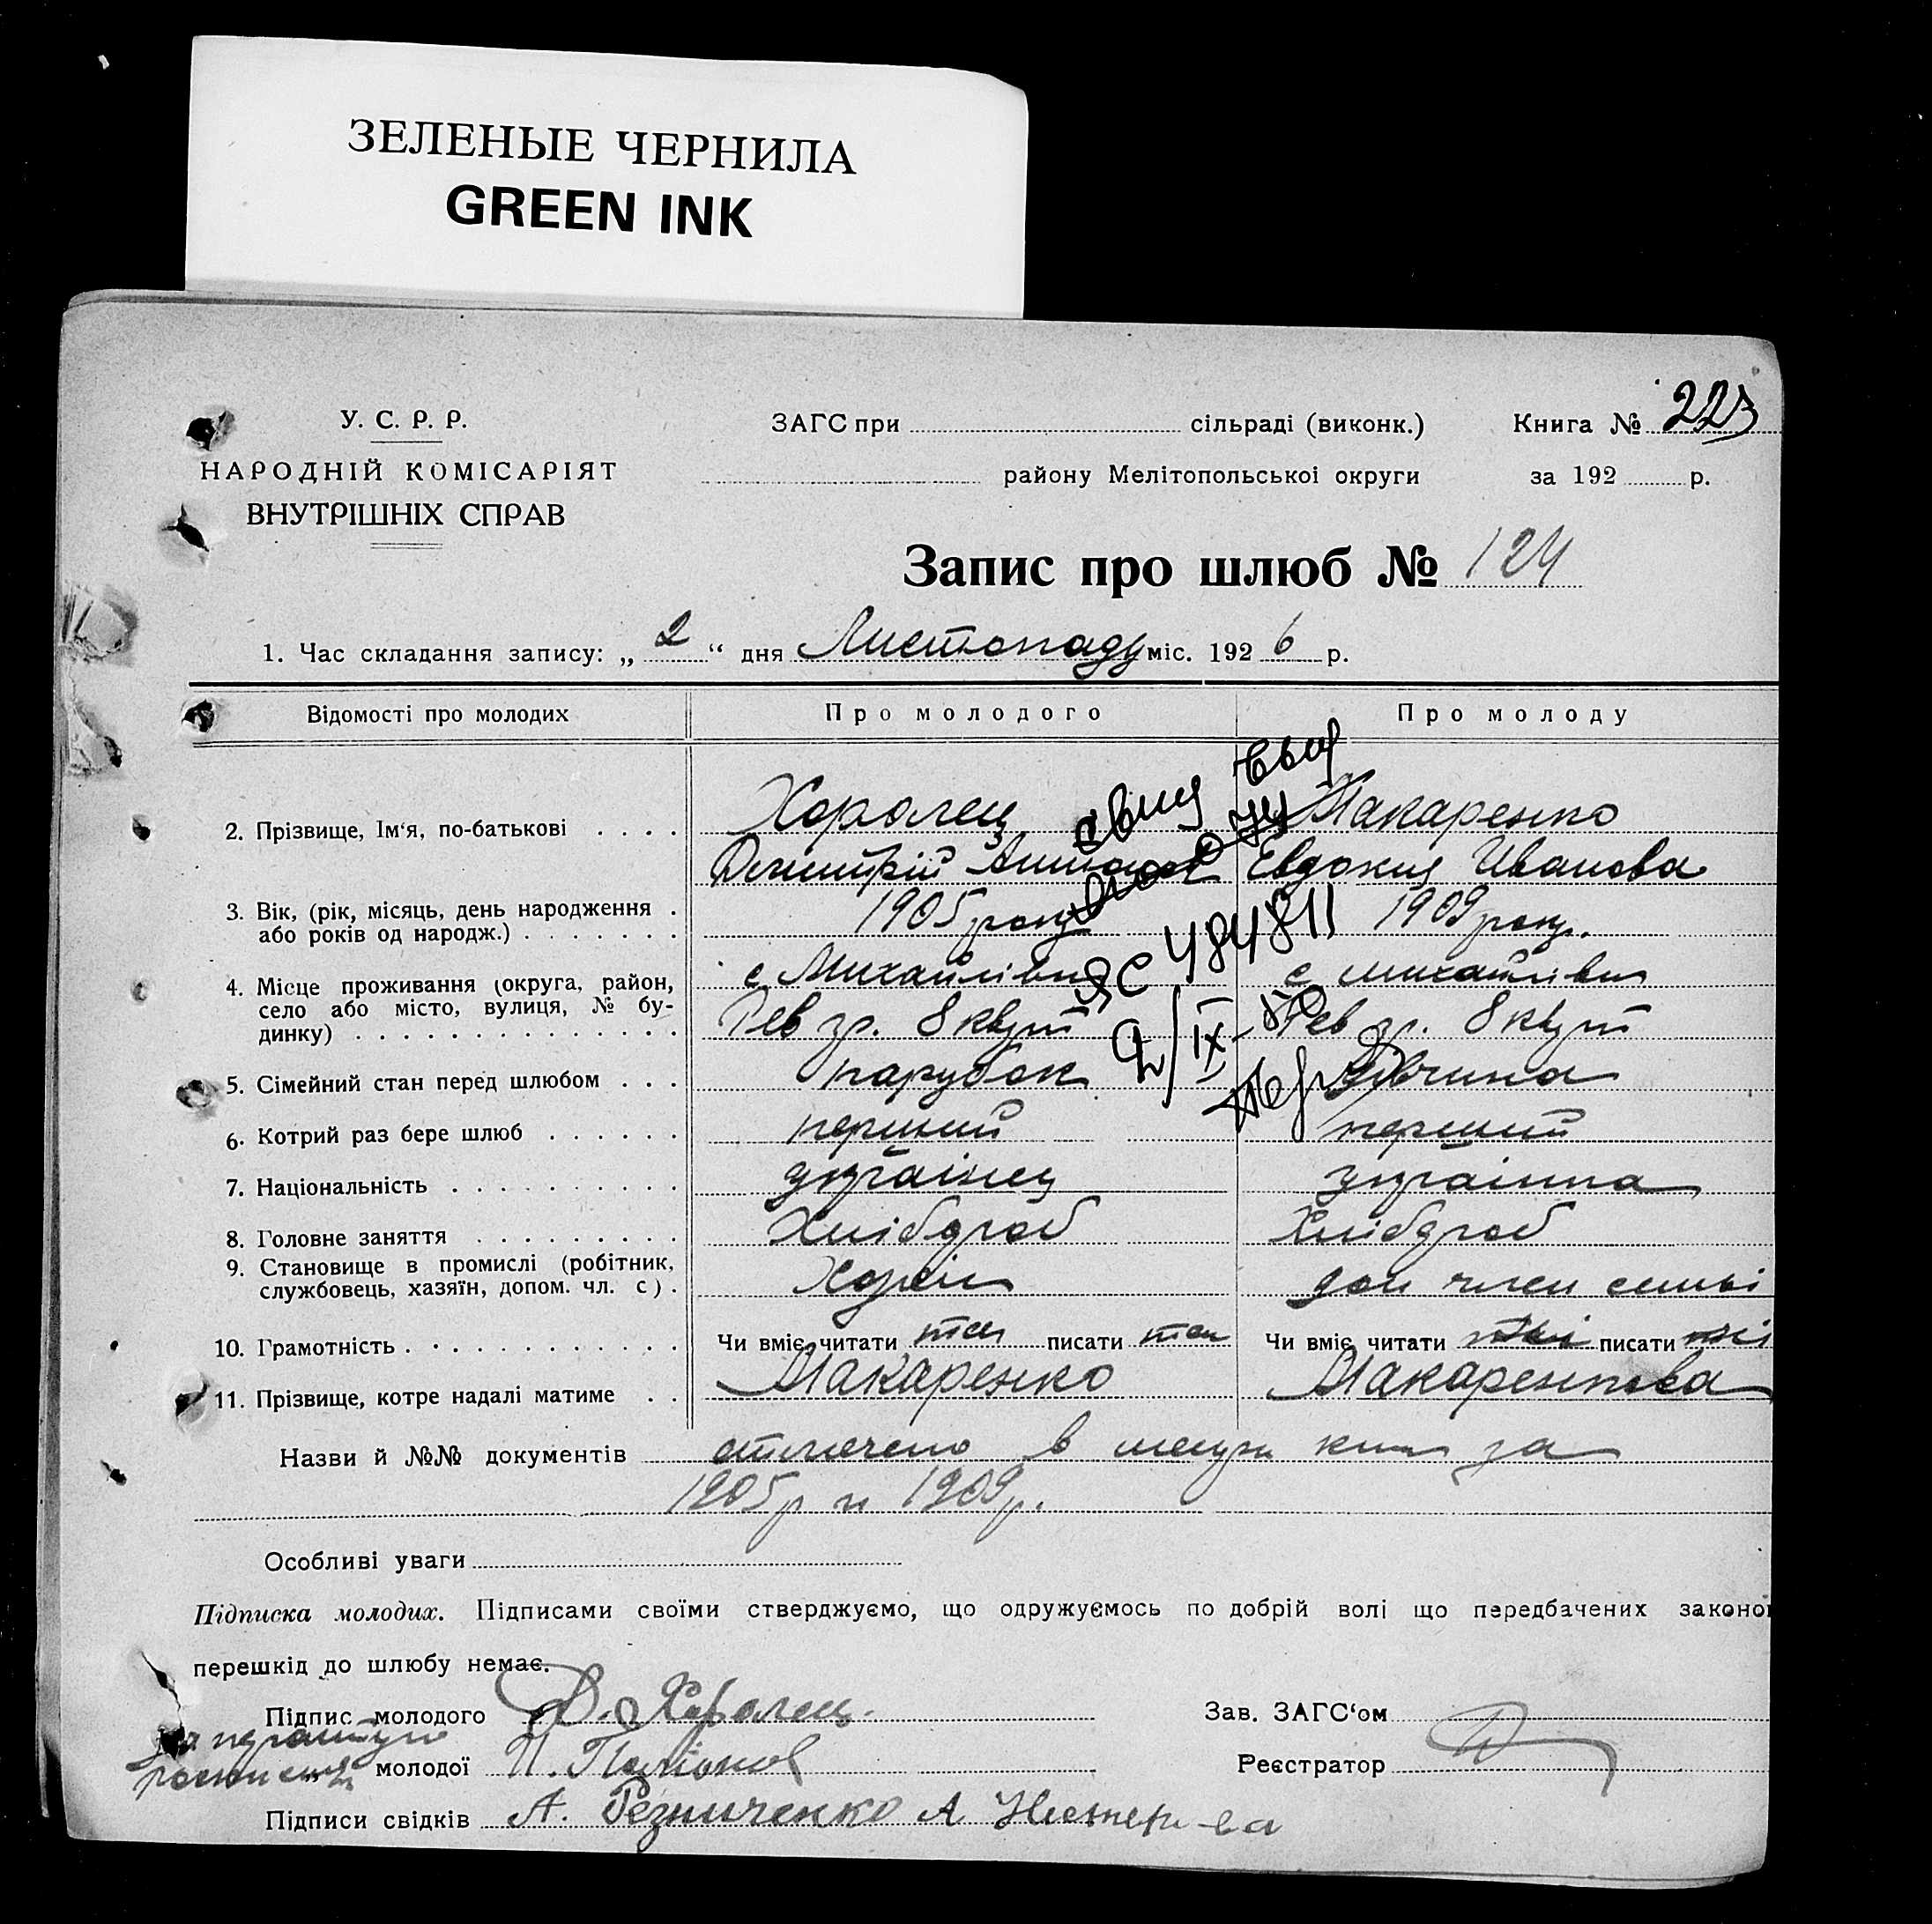 ЗЕЛЕНЫЕ ЧЕРНИЛА
GREEN INK
У. С. Р. Р.
НАРОДНІЙ КОМІСАРІЯТ
ВНУТРІШНІХ СПРАВ
ЗАГС при сільраді (виконк.)
району Мелітопольської округи
Книга № 223
за 192 р.
Запис про шлюб № 124
1. Час складання запису: „ 2 “ дня Листопаду міс. 192 6 р.
Відомості про молодих Про молодого Про молоду
2. Прізвище, Ім‘я, по-батькові . . . . Хоролец Макаренко
Дмитрій Евдокия Иванова
3. Вік, (рік, місяць, день народження . 1905 року 1909 року.
або років од народж.) . . . . . . .
4. Місце проживання (округа, район, с Михайлівка с михайлівка
село або місто, вулиця, № бу- Рев гр. 8 кварт Рев гр. 8 кварт
динку) . . . . . . . . . . . . . .
ЯС 484811
5. Сімейний стан перед шлюбом . . . парубок дівчина
6. Котрий раз бере шлюб . . . . . . перший перший
7. Національність . . . . . . . . . . українец українка
8. Головне заняття . . . . . . . . . Хлібороб Хлібороб
9. Становище в промислі (робітник,
службовець, хазяїн, допом. чл. с) . доп член семьі
10. Грамотність . . . . . . . . . . . . Чи вміє читати так писати так Чи вміє читати писати
11. Прізвище, котре надалі матиме . . Макаренко Макаренкова
Назви й №№ документів отмечено в за
1905р и 1909р.
Особливі уваги
Підписка молодих. Підписами своїми стверджуємо, що одружуємось по добрій волі що передбачених законо
перешкід до шлюбу немає.
Підпис молодого Д. Хоролец. Зав. ЗАГС‘ом
молодої Реєстратор
Підписи свідків А. Резниченко А